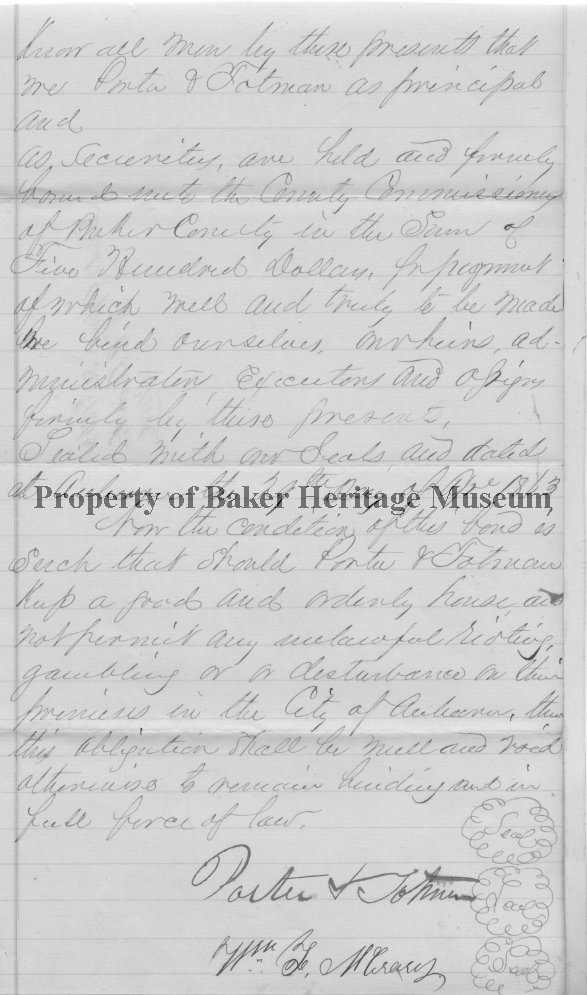 Know all men by these presents that
we Porter & Totman as principal
and
as Security, are held and firmly
bound unto the County Commissioners
of Baker County in the Sum of
Five Hundred Dollars, for payment
of which well and truly to be made
We bind ourselves, our heirs, ad-
ministrators, Executors and assigns
firmly by these presents,
Sealed with our Seals and dated
at Auburn
Property of Baker Heritage Museum
Now the condition of this bond is
Such that should Porter & Totman
Keep a good and orderly house, and
not permit any unlawful rioting,
gambling or a disturbance on their
premises in the City of Auburn, then
this obligation shall be null and void
otherwise to remain binding and in
full force of law.
Seal
Porter & Totman
Seal
Wm F. McCrary
Seal